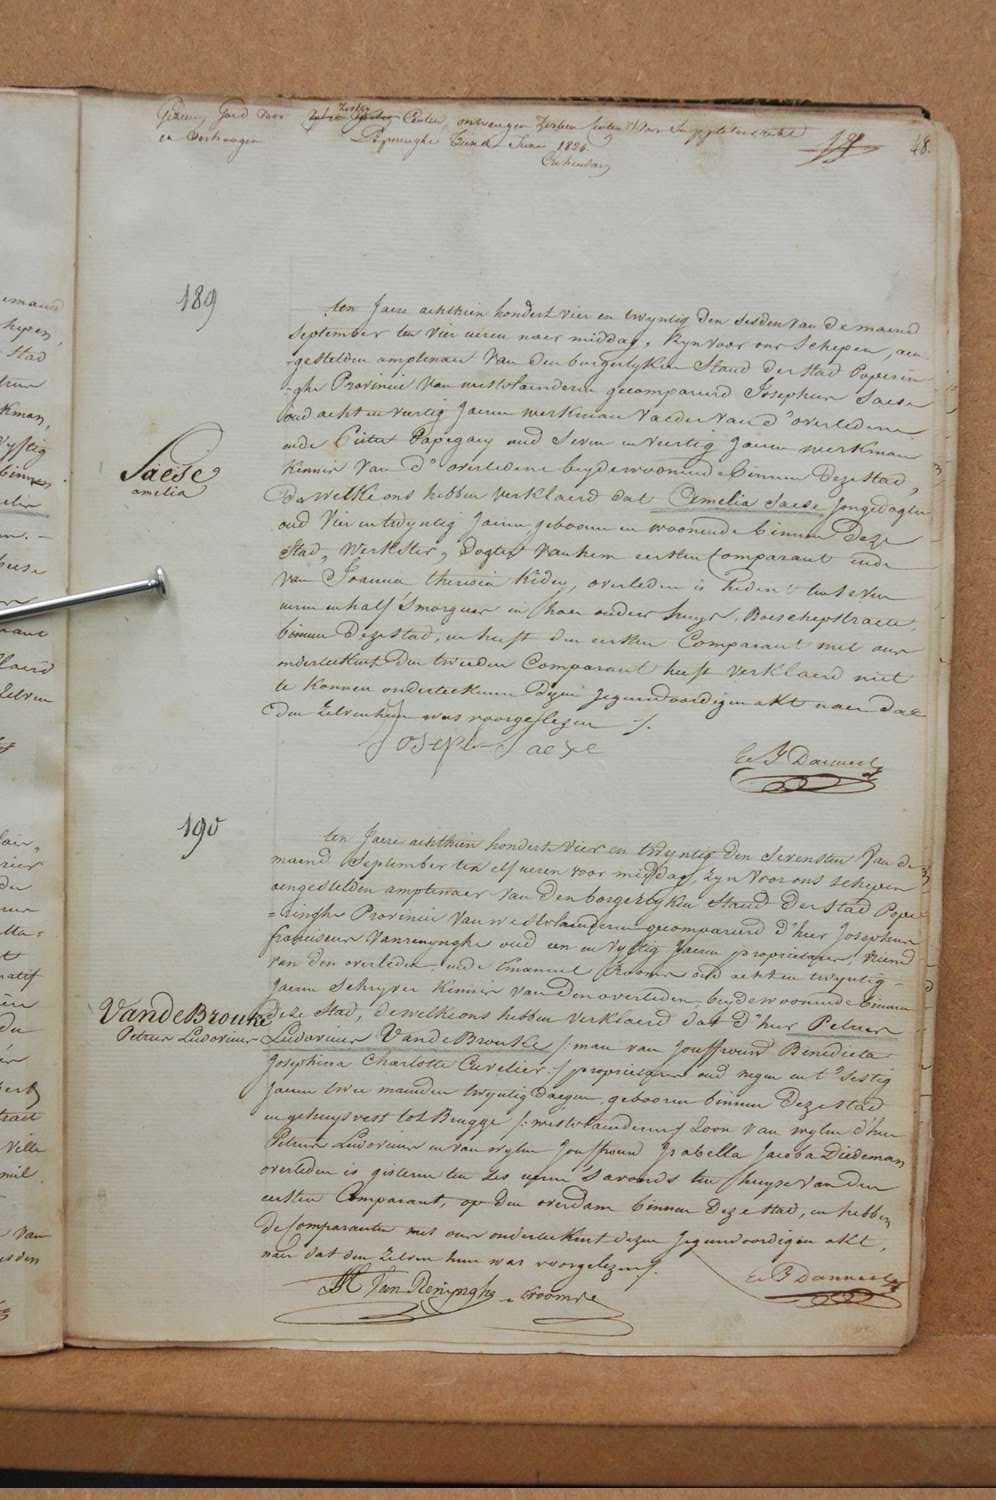 Gezien, Goed voor zestig Centen, ontvangen dertien Centen voor Supplet
en Verhoogen
Poperinghe Junii 1824
48.
189
Saese
amelia
ten Jaere achthien hondert vier en twyntig den sesden van de maend
september ten vier ueren naer middag, zyn voor ons schepen, aen
-gestelden amptenaer van den borgerlyken Stand der stad Poperin
-ghe Provincie van westvlaenderen gecompareerd Josephus Saese
oud acht en veertig Jaeren werkman vaeder van d'overledene
ende Pieter Papegaey oud seven en veertig Jaeren werkman
kennis van d'overledene beyde woonende binnen deze stad,
dewelke ons hebben verklaerd dat Amelia Saese Jongedogter
oud vier en twyntig Jaeren geboren en woonende binnen deze
stad, werkster, dogter van hem eersten Comparant ende
van Joanna theresia overleden is heden ten seven
ueren en half s'morgens in haer ouders huys, Boeschepstraete,
binnen deze stad, en heeft den eersten Comparant met ons
onderteekent den tweeden Comparant heeft verklaerd niet
te konnen onderteekenen dezen jegenwoordigen akt naer dat
den zelven hun was voorgelezen ./.
Joseph Saese
190
VandeBrouke
Petrus Ludovicus
ten Jaere achthien hondert vier en twyntig den sevensten van de
maend September ten elf ueren voor middag, zyn voor ons schepen
aengestelden amptenaer van den borgerlyken Stand der stad Pope
=ringhe Provincie van westvlaenderen gecompareerd d'heer Josephus
franciscus Vanrenynghe oud een en vyftig Jaeren proprietaris, vriend
van den overleden, ende Emanuel Croomre oud acht en twyntig
Jaeren schryver kennis van den overleden, beyde woonende binnen
deze stad, dewelke ons hebben verklaerd dat d'heer Petrus
Ludovicus VandeBrouke /: man van Jouffrouw Benedicta
Josephina Charlotte Cuvelier :/ proprietaris oud negen en t'sestig
Jaeren twee maenden twyntig daegen, geboren binnen deze stad
en gehuysvest tot Brugge /: westvlaenderen :/ Zoon van wylen d'heer
Petrus Ludovicus en van wylen Jouffrouw Isabella Jacoba Diedeman
overleden is gisteren ten zes ueren s'avonds ten huyse van den
eersten Comparant, op den overdam binnen deze stad, en hebben
de Comparanten met ons onderteekent dezen jegenwoordigen akt,
naer dat den zelven hun was voorgelezen ./.
Van Renynghe Croomre